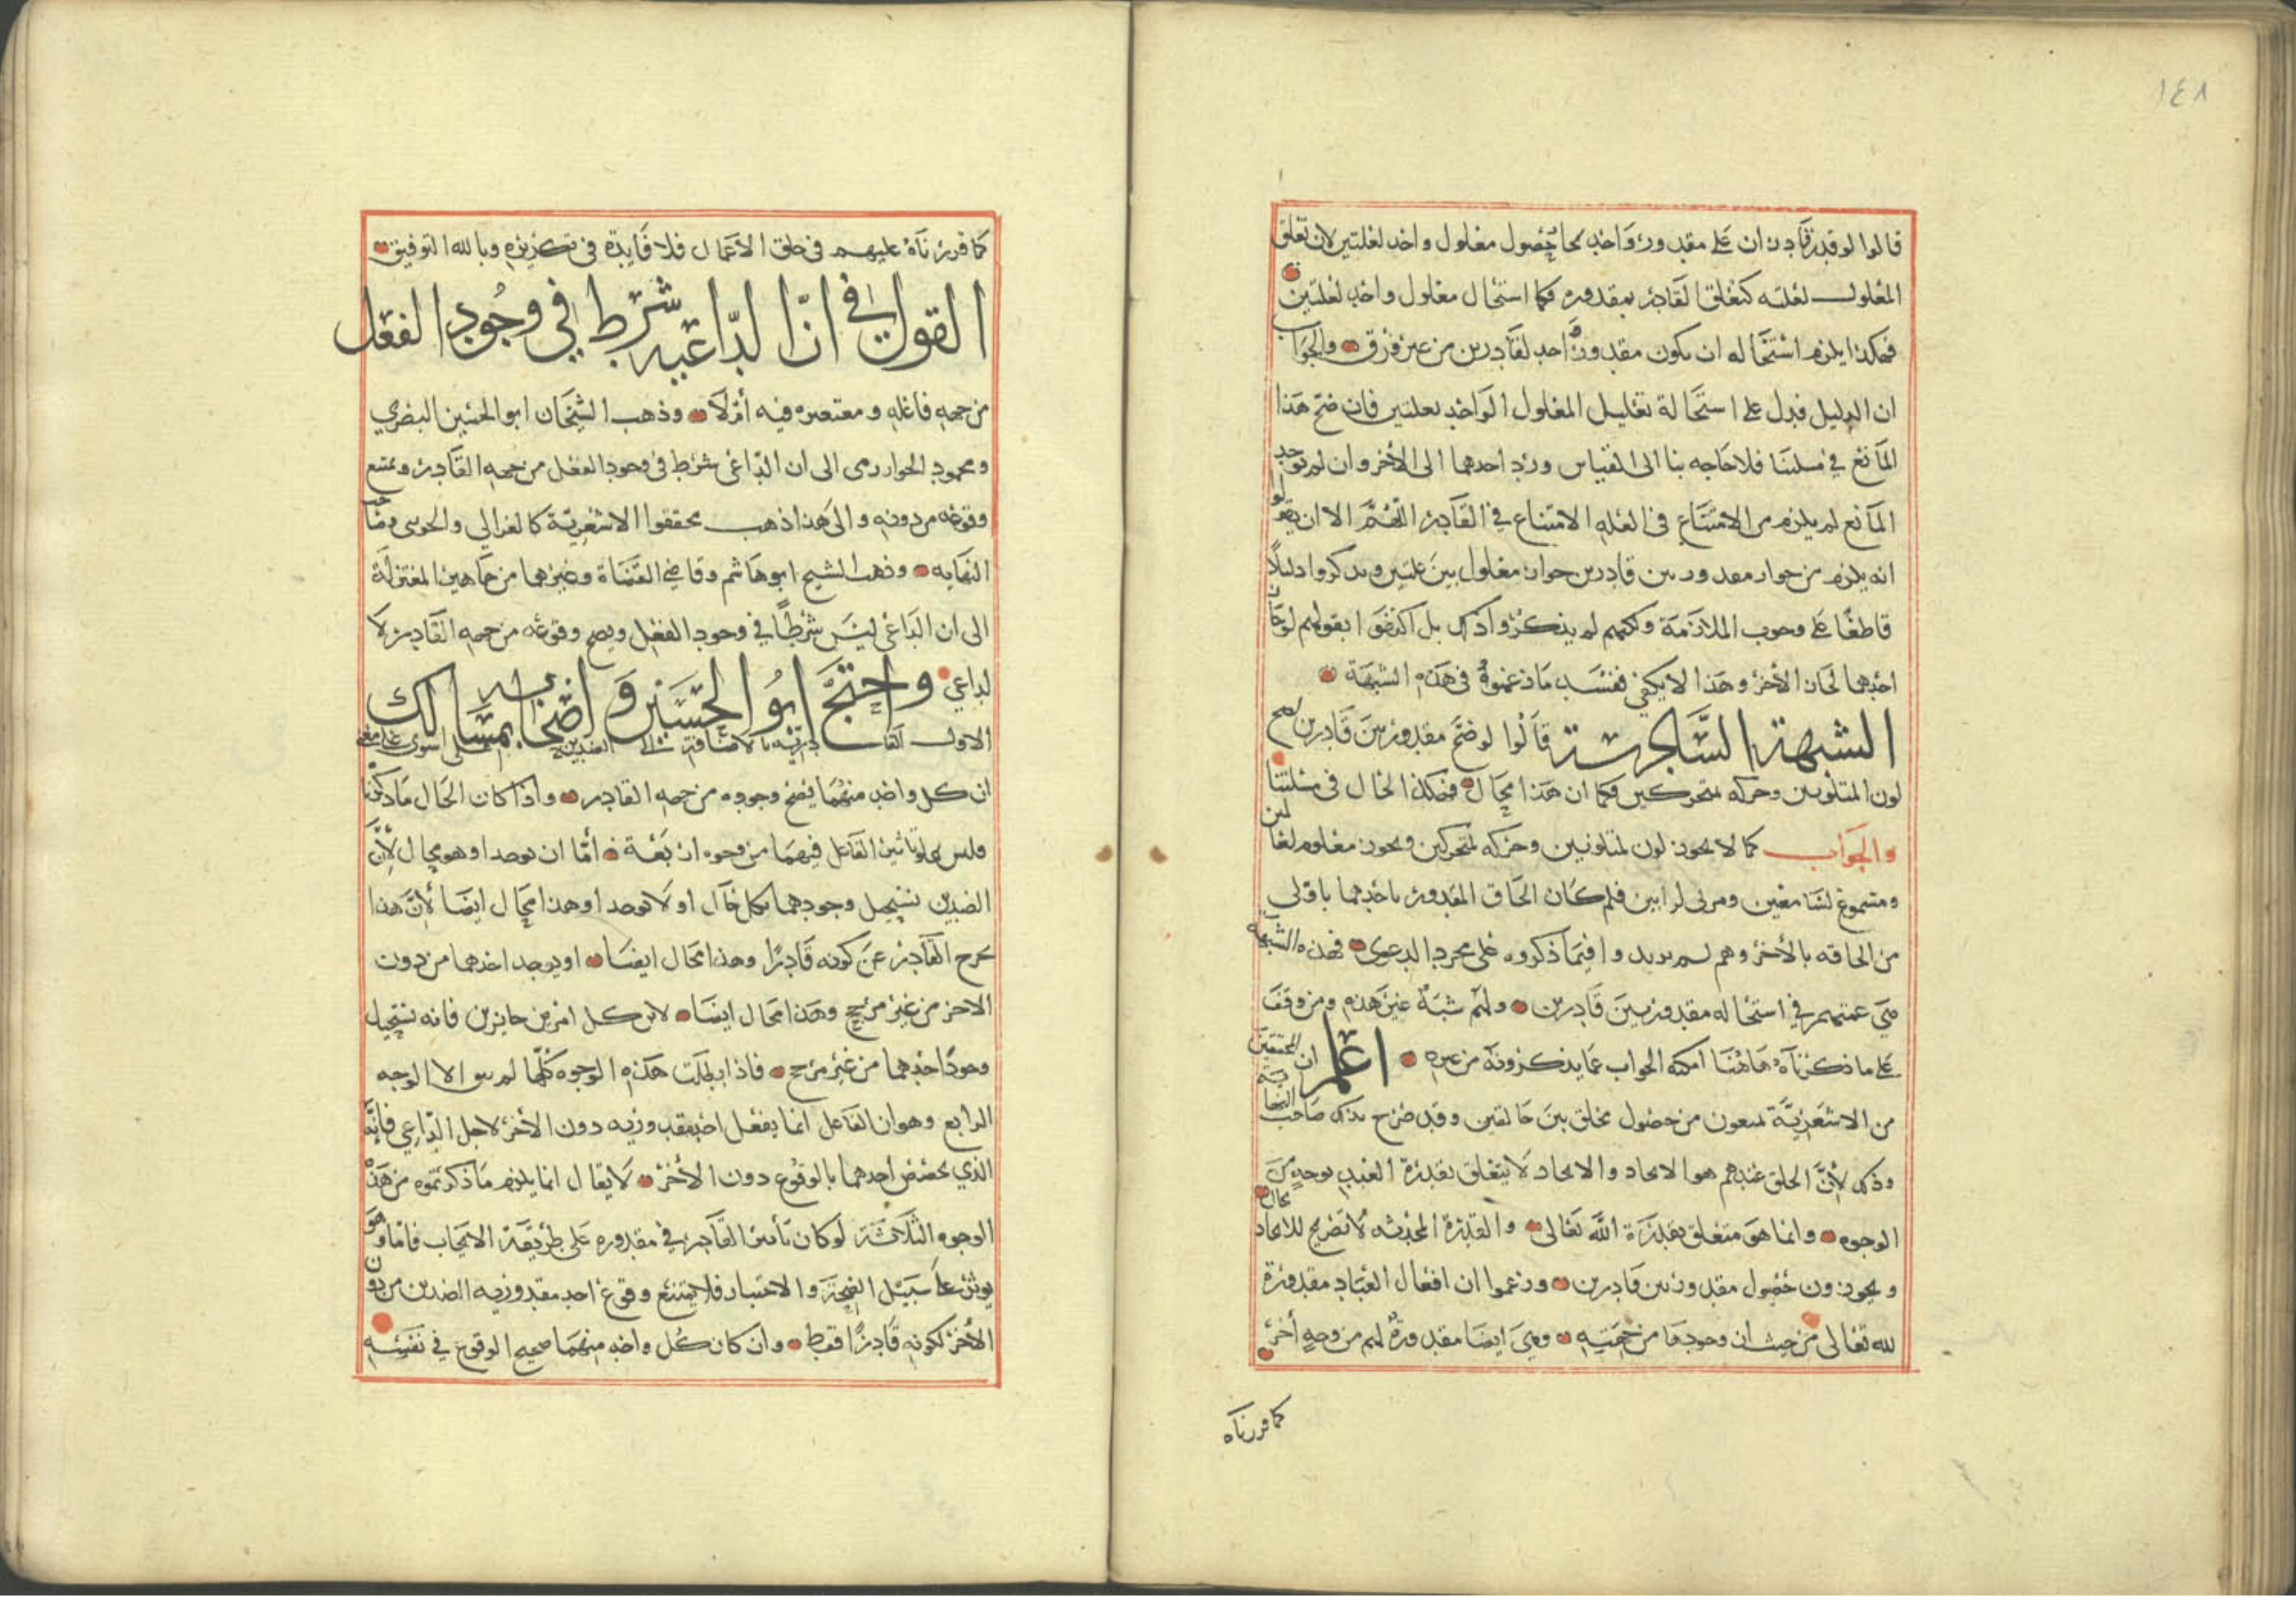 ١٤٨
قالوا لو قدر قادران على مقدور واحد لجاز حصول معلول واحد لعلتين لان تعلق
المعلول لعلته كتعلق القادر بمقدوره فكما استحال معلول واحد لعلتين
فهكذا يلزم استحاله ان يكون مقدور واحد لقادرين من غير فرق والجواب
ان الدليل قد دل على استحالة تعليل المعلول الواحد بعلتين فان صح هذا
المانع في مسلتنا فلا حاجه بنا الى القياس ورد احدهما الى الآخر وان لم يوجد
المانع لم يلزم من الامتناع في العله الامتناع في القادر اللهم الا ان يقولوا
انه يلزم من جواز مقدور بين قادرين جواز معلول بين علتين ويذكروا دليلاً
قاطعًا على وجوب الملازمة ولكنهم لم يذكروا ذلك بل اكتفوا بقولهم لو جاز
احدهما لجاز الآخر وهذا لا يكفي ففسد ما زعموه في هذه الشبهة
الشبهة السادسة قالوا لو صح مقدور بين قادرين لصح
لون لمتلونين وحركه لمتحركين فكما ان هذا محال فهكذا الحال في مسلتنا
والجواب كما لا يجوز لون لمتلونين وحركه لمتحركين ويجوز معلوم لعالمين
ومسموع لسامعين ومرئى لرايين فلم كان الحاق المقدور باحدهما باولى
من الحاقه بالآخر وهم لم يزيدوا فيما ذكروه على مجرد الدعوى فهذه الشبهة
هي عمدتهم في استحاله مقدور بين قادرين ولهم شبه غير هذه ومن وقف
على ما ذكرناه هاهنا امكنه الجواب عما يذكرونه من غيره اعلم ان المحققين
من الاشعرية يمنعون من حصول مخلق بين خالقين وقد صرح بذلك صاحب النهايه
وذلك لأن الخلق عندهم هو الايجاد والايجاد لا يتعلق بقدرة العبد بوجه من
الوجوه وانما هو متعلق بقدرة الله تعالى والقدرة المحدثه لا تصلح للايجاد بحال
ويجوزون حصول مقدور بين قادرين وزعموا ان افعال العباد مقدورة
لله تعالى من حيث ان وجودها من جهته وهي ايضا مقدورة لهم من وجه أخر
كما قررناه
كما قررناه عليهم في خلق الاعمال فلا فايدة في تكريره وبالله التوفيق
القول في ان الداعيه شرط في وجود الفعل
من جهه فاعله ومعتبره فيه أم لا وذهب الشيخان ابو الحسين البصري
ومحمود الخوارزمى الى ان الداعى شرط في وجود الفعل من جهه القادر ويمتنع
وقوعه من دونه والى هذا ذهب محققوا الاشعرية كالغزالي والجوينى وصاحب
النهايه وذهب الشيخ ابو هاشم وقاضي القضاة وغيرهما من جماهير المعتزلة
الى ان الداعي ليس شرطًا في وجود الفعل ويصح وقوعه من جهه القادر لا
لداعي واحتج ابو الحسين واصحابه بمسالك
الاول القادرية بالاضافة الى الضدين على السوى على معنى
ان كل واحد منهما يصح وجوده من جهه القادر واذا كان الحال ما ذكرنا
وليس يخلو تاثير الفاعل فيهما من وجوه اربعة أما ان يوجدا وهو محال لأن
الضدين يستحيل وجودهما بكل حال او لا يوجدا وهذا محال ايضا لأن هذا
يخرج القادر عن كونه قادرًا وهذا محال ايضا او يوجد احدهما من دون
الاخر من غير مرجح وهذا محال ايضا لان كل امرين جايزين فانه يستحيل
وجود احدهما من غير مرجح فاذا بطلت هذه الوجوه كلها لم يبق الا الوجه
الرابع وهو ان الفاعل انما يفعل احد مقدوريه دون الآخر لاجل الداعي فإنه
الذي يخصص أحدهما بالوقوع دون الآخر لا يقال انما يلزم ما ذكرتموه من هذه
الوجوه الثلاثة لو كان تأثير القادر في مقدوره على طريقة الايجاب فاما وهو
يوثر على سبيل الصحة والاختيار فلا يمتنع وقوع احد مقدوريه الضدين من دون
الآخر لكونه قادرًا فقط وان كان كل واحد منهما صحيح الوقوع في نفسه